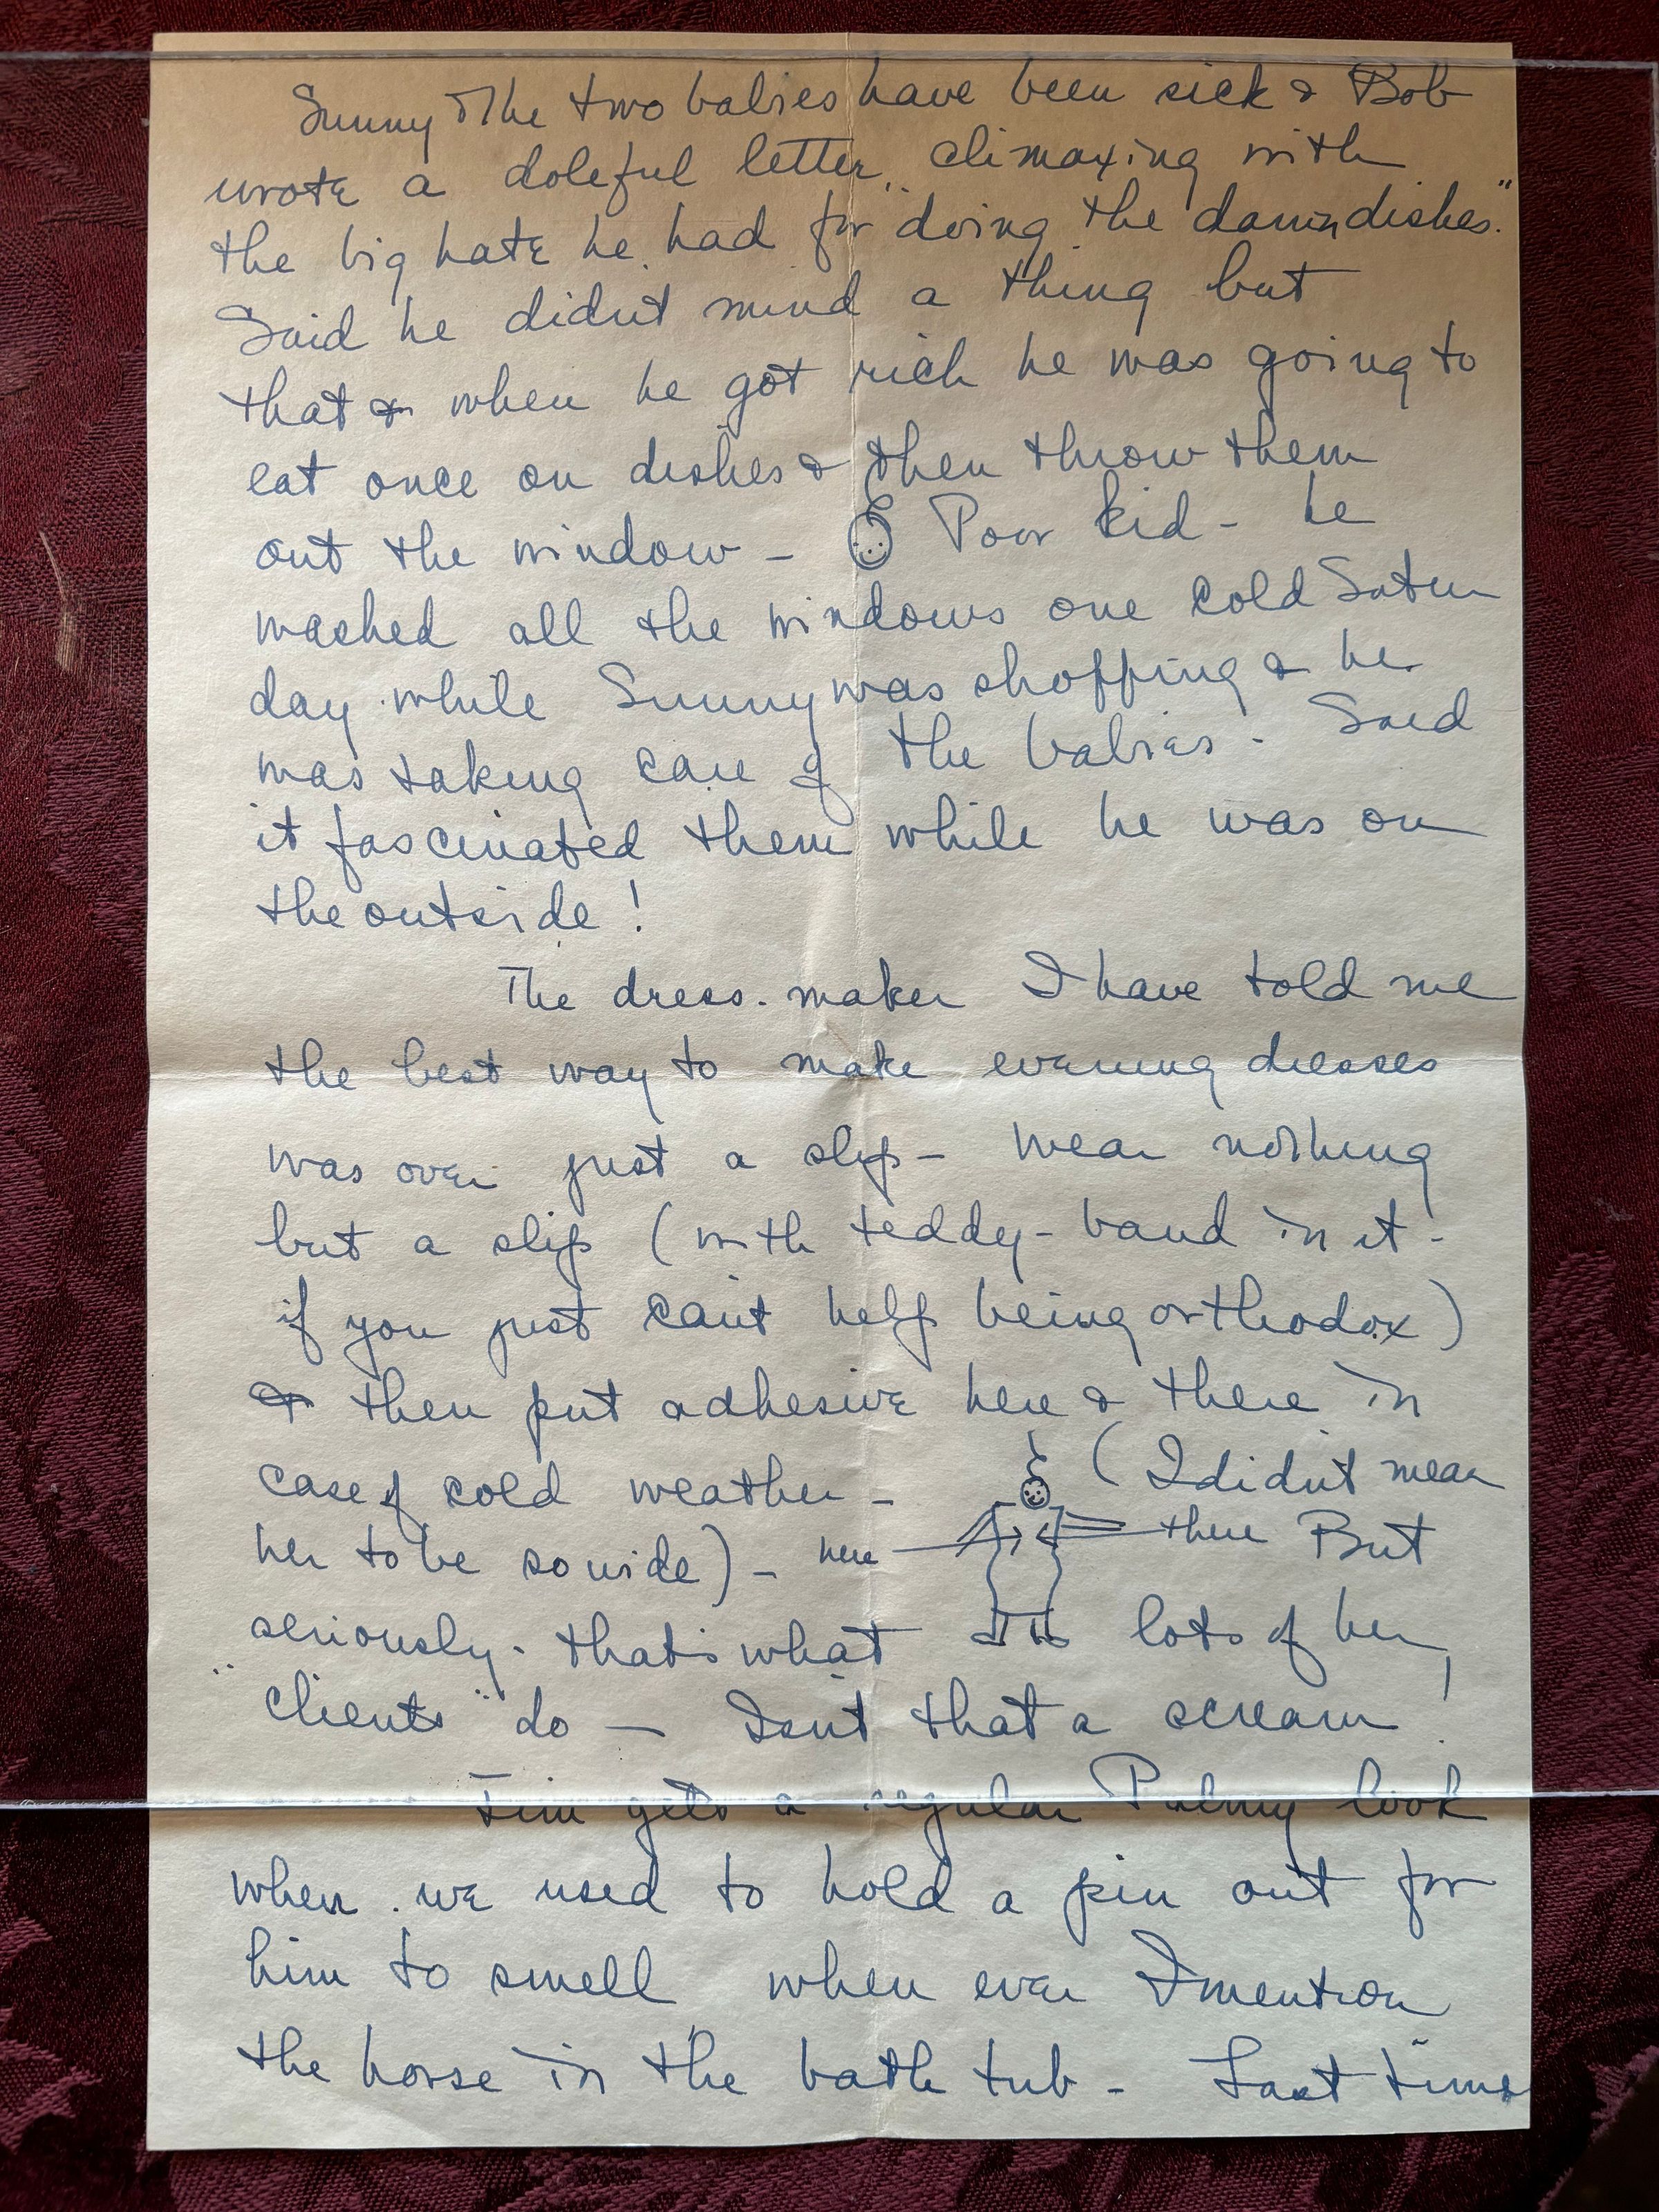 Sunny & the two babies have been sick & Bob
wrote a doleful letter, climaxing with
the big hate he had for "doing the damn dishes."
Said he didn't mind a thing but
that & when he got rich he was going to
eat once on dishes & then throw them
out the window - Poor kid - he
washed all the windows one cold Satur
day while Sunny was shopping & he
was taking care of the babies - Said
it fascinated them while he was on
the outside!
The dress-maker I have told me
the best way to make evening dresses
was over just a slip - wear nothing
but a slip (with teddy-band in it -
if you just can't help being orthodox)
& then put adhesive here & there in
case of cold weather - (I didn't mean
her to be so wide) - here there But
seriously - that's what lots of her
"clients" do - Isn't that a scream!
Jim gets a regular look
when we used to hold a pin out for
him to smell when ever I mention
the horse in the bath tub - Last time